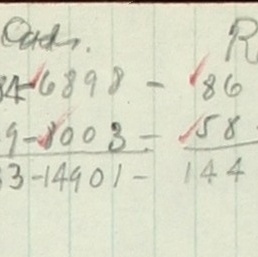 Cads. R
84-6898 - 86
9-8003 - 58
33-14901- 144